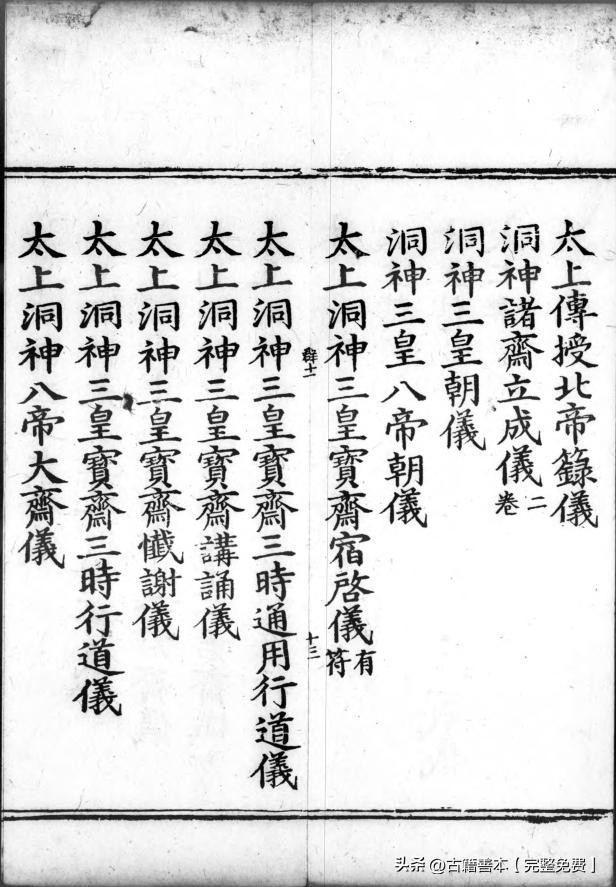 太上傳授北帝籙儀
洞神諸齋立成儀二卷
洞神三皇朝儀
洞神三皇八帝朝儀
太上洞神三皇寶齋宿啓儀有符
群十
十三
太上洞神三皇寶齋三時通用行道儀
太上洞神三皇寶齋講誦儀
太上洞神三皇寶齋懴謝儀
太上洞神三皇寶齋三時行道儀
太上洞神八帝大齋儀
头杀@古籍善本【完整免费】